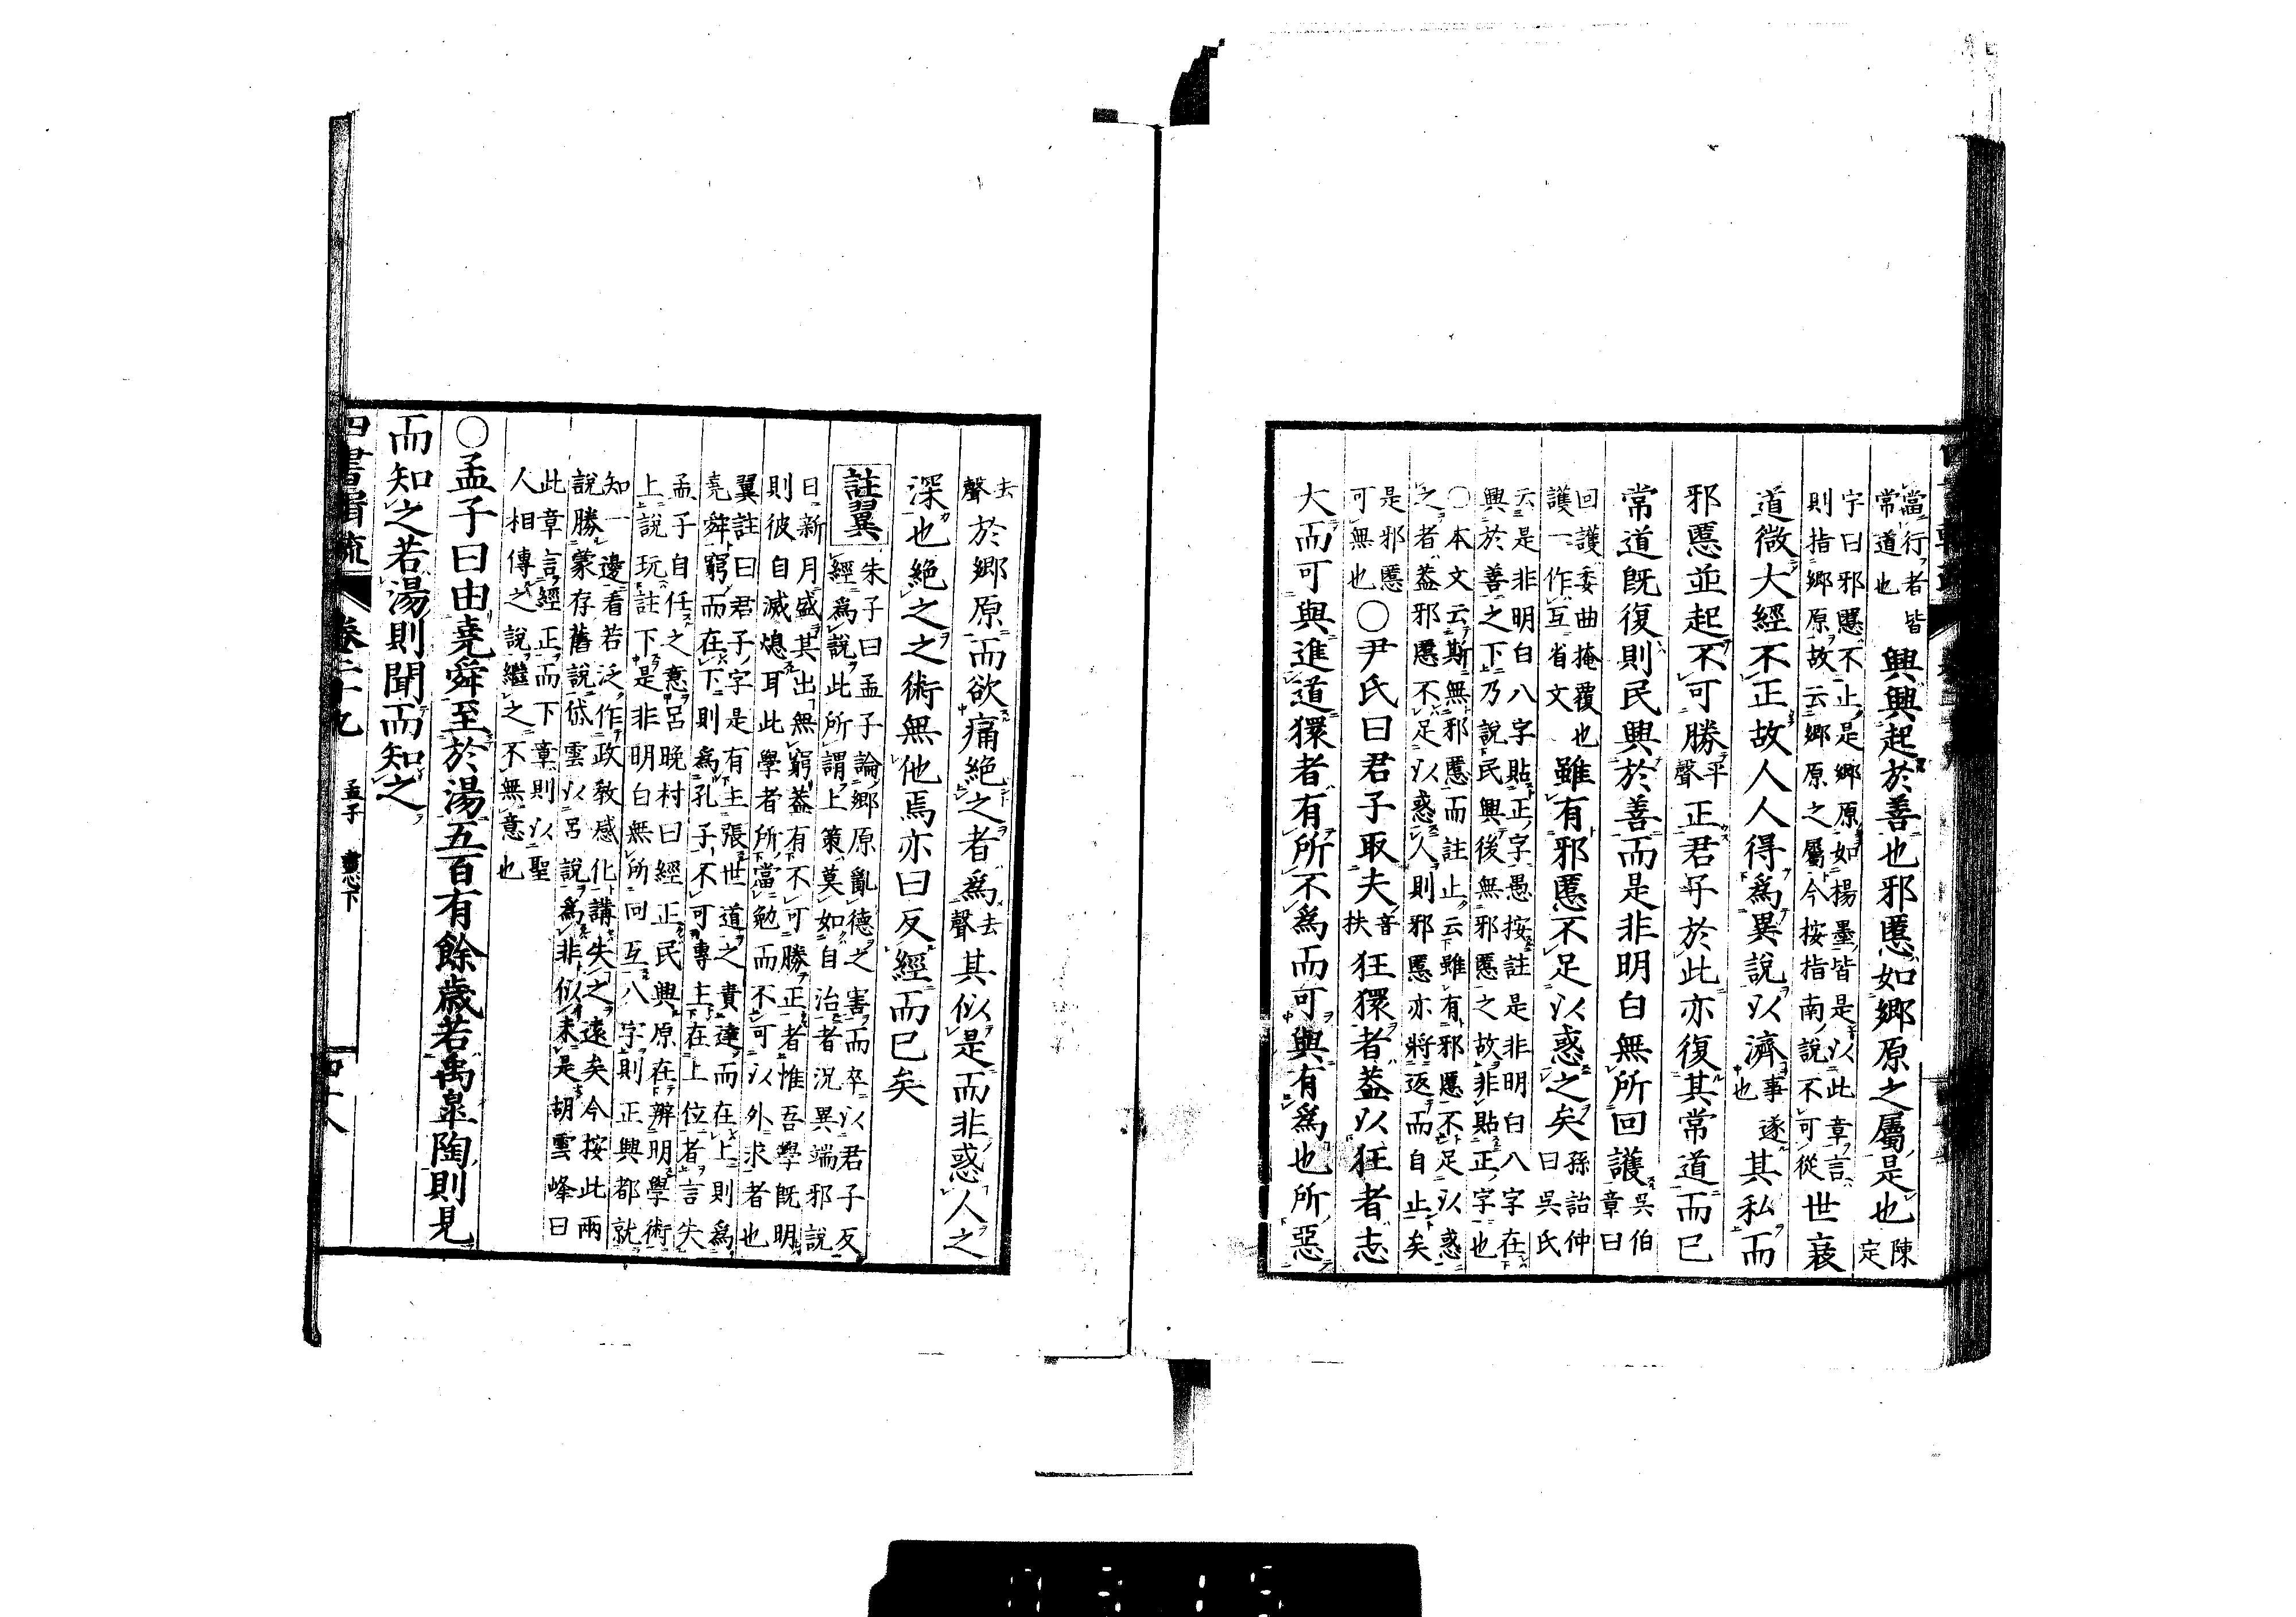 當行者皆
常道也
興興起於善也邪慝如鄉原之屬是也
陳
定
字曰邪慝不止是鄉原如楊墨皆是以此章言
則指鄉原故云鄉原之屬今按指南說不可從
世衰
道微大經不正故人人得為異說以濟
事遂
也
其私而
邪慝並起不可勝
平
聲
正君子於此亦復其常道而已
常道既復則民興於善而是非明白無所回護
吳伯
章曰
回護委曲掩覆也
護一作互省文
雖有邪慝不足以惑之矣
孫詒仲
曰吳氏
云是非明白八字貼正字愚按註是非明白八字在
興於善之下乃說民興後無邪慝之故非貼正字也
○本文云斯無邪慝而註止云雖有邪慝不足以惑
之者蓋邪慝不足以惑人則邪慝亦將返而自止矣
是邪慝
可無也
○尹氏曰君子取夫
音
扶
狂獧者蓋以狂者志
大而可與進道獧者有所不為而可與有為也所惡
去
聲
於鄉原而欲痛絕之者為
去
聲
其似是而非惑人之
深也絕之之術無他焉亦曰反經而已矣
註翼
朱子曰孟子論鄉原亂德之害而卒以君子反
經為說此所謂上策莫如自治者況異端邪說
日新月盛其出無窮蓋有不可勝正者惟吾學既明
則彼自滅熄耳此學者所當勉而不可以外求者也
翼註曰君子字是有主張世道之責達而在上則為
堯舜窮而在下則為孔子不可專主在上位者言失
孟子自任之意呂晚村曰經正民興原在辨明學術
上說玩註下是非明白無所回互八字則正興都就
知一邊看若泛作政教感化講失之遠矣今按此兩
說勝蒙存舊說岱雲以呂說為非似未是胡雲峰曰
此章言經正而下章則以聖
人相傳之說繼之不無意也
○孟子曰由堯舜至於湯五百有餘歲若禹皐陶則見
而知之若湯則聞而知之
四書輯疏
卷二十九
孟子
盡心下
四十八